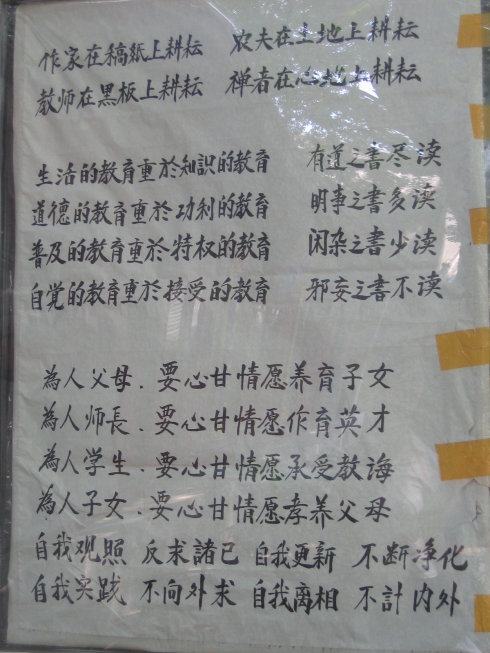 作家在稿紙上耕耘 农夫在土地上耕耘
教师在黑板上耕耘 禅者在心地上耕耘
生活的教育重於知識的教育 有道之書尽渎
道德的教育重於功利的教育 明事之書多渎
普及的教育重於特权的教育 闲杂之書少渎
自覚的教育重於接受的教育 邪妄之書不渎
為人父母．要心甘情愿养育子女
為人师長．要心甘情愿作育英才
為人学生．要心甘情愿承受教诲
為人子女．要心甘情愿孝养父母
自我观照 反求諸己 自我更新 不断净化
自我实践 不向外求 自我离相 不計内外